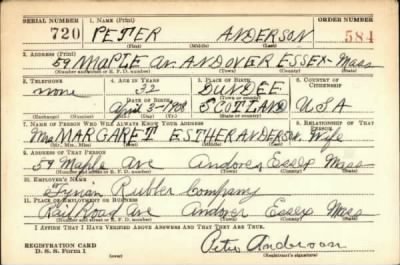 SERIAL NUMBER 1. NAME (Print) ORDER NUMBER
720 PETER ANDERSON 584
(First) (Middle) (Last)
2. ADDRESS (Print)
59 MAPLE AV. ANDOVER ESSEX Mass
(Number and street or R. F. D. number) (Town) (County) (State)
3. TELEPHONE 4. AGE IN YEARS 5. PLACE OF BIRTH 6. COUNTRY OF CITIZENSHIP
none 32 DUNDEE
DATE OF BIRTH (Town or county)
April 3-1908 SCOTLAND USA
(Exchange) (Number) (Mo.) (Day) (Yr.) (State or country)
7. NAME OF PERSON WHO WILL ALWAYS KNOW YOUR ADDRESS 8. RELATIONSHIP OF THAT PERSON
Mrs MARGARET ESTHER ANDERSON. Wife
(Mr., Mrs., Miss) (First) (Middle) (Last)
9. ADDRESS OF THAT PERSON
59 Maple Ave Andover Essex Mass
(Number and street or R. F. D. number) (Town) (County) (State)
10. EMPLOYER'S NAME
Rubber Company
11. PLACE OF EMPLOYMENT OR BUSINESS
Rail Road Ave Andover Essex Mass
(Number and street or R. F. D. number) (Town) (County) (State)
I AFFIRM THAT I HAVE VERIFIED ABOVE ANSWERS AND THAT THEY ARE TRUE.
REGISTRATION CARD
D. S. S. Form 1 (over) Peter Anderson
(Registrant's signature)